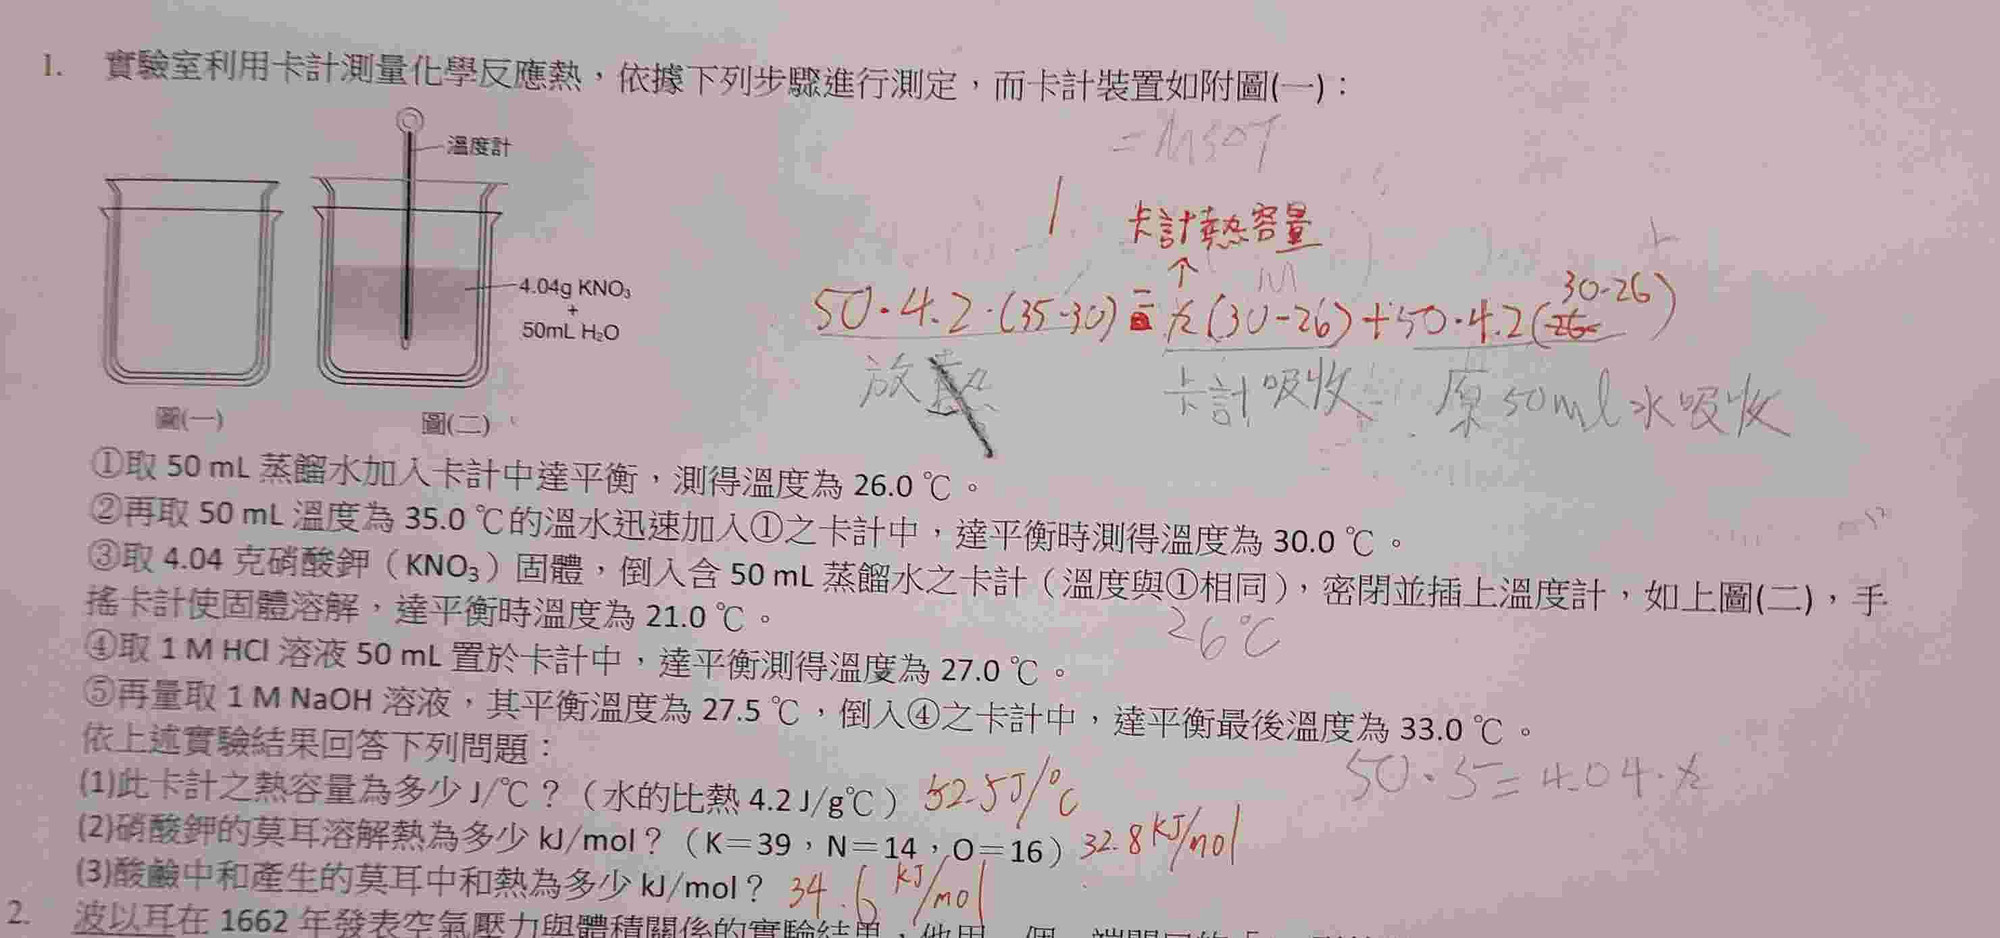 1. 實驗室利用卡計測量化學反應熱，依據下列步驟進行測定，而卡計裝置如附圖(一)：
= MSΔT
溫度計
卡計熱容量
↑
4.04g KNO₃
+
50mL H₂O
30-26
50·4.2·(35-30) = x(30-26)+50·4.2(26
放熱
卡計吸收
原50ml水吸收
圖(一)
圖(二)
①取 50 mL 蒸餾水加入卡計中達平衡，測得溫度為 26.0 ℃。
②再取 50 mL 溫度為 35.0 ℃的溫水迅速加入①之卡計中，達平衡時測得溫度為 30.0 ℃。
③取 4.04 克硝酸鉀（KNO₃）固體，倒入含 50 mL 蒸餾水之卡計（溫度與①相同），密閉並插上溫度計，如上圖(二)，手
搖卡計使固體溶解，達平衡時溫度為 21.0 ℃。
26℃
④取 1 M HCl 溶液 50 mL 置於卡計中，達平衡測得溫度為 27.0 ℃。
⑤再量取 1 M NaOH 溶液，其平衡溫度為 27.5 ℃，倒入④之卡計中，達平衡最後溫度為 33.0 ℃。
依上述實驗結果回答下列問題：
50·5=4.04·x
(1)此卡計之熱容量為多少 J/℃？（水的比熱 4.2 J/g℃） 52.5J/℃
(2)硝酸鉀的莫耳溶解熱為多少 kJ/mol？（K＝39，N＝14，O＝16） 32.8 kJ/mol
(3)酸鹼中和產生的莫耳中和熱為多少 kJ/mol？ 34.6 kJ/mol
2. 波以耳在 1662 年發表空氣壓力與體積關係的實驗結果，他用一個一端開口的